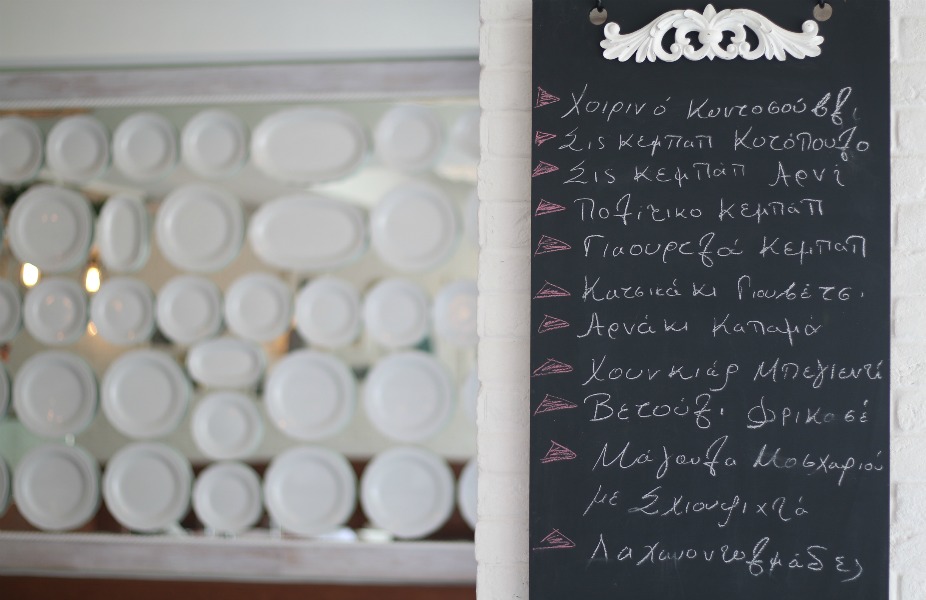 Χοιρινό Κοντοσούβλι
Σις Κεμπαπ Κοτόπουλο
Σις Κεμπάπ Αρνί
Πολίτικο Κεμπάπ
Γιαουρτλού Κεμπαπ
Κατσικάκι Γιουβέτσι
Αρνάκι Καπαμά
Χουνκιάρ Μπεγιεντί
Βετούλι Φρικασέ
Μάγουλα Μοσχαριού
με Σκιουφιχτά
Λαχανοντολμάδες